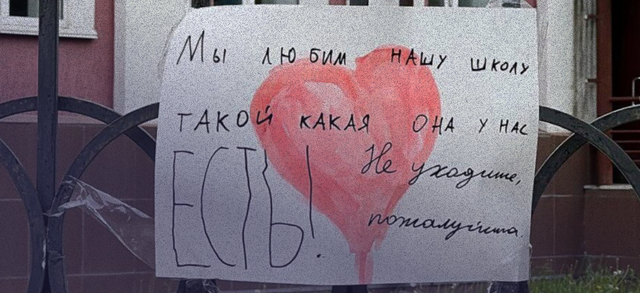 Мы ЛЮБИМ НАШУ ШКОЛУ
ТАКОЙ КАКАЯ ОНА У НАС
ЕСТЬ! Не уходите,
пожалуйста.